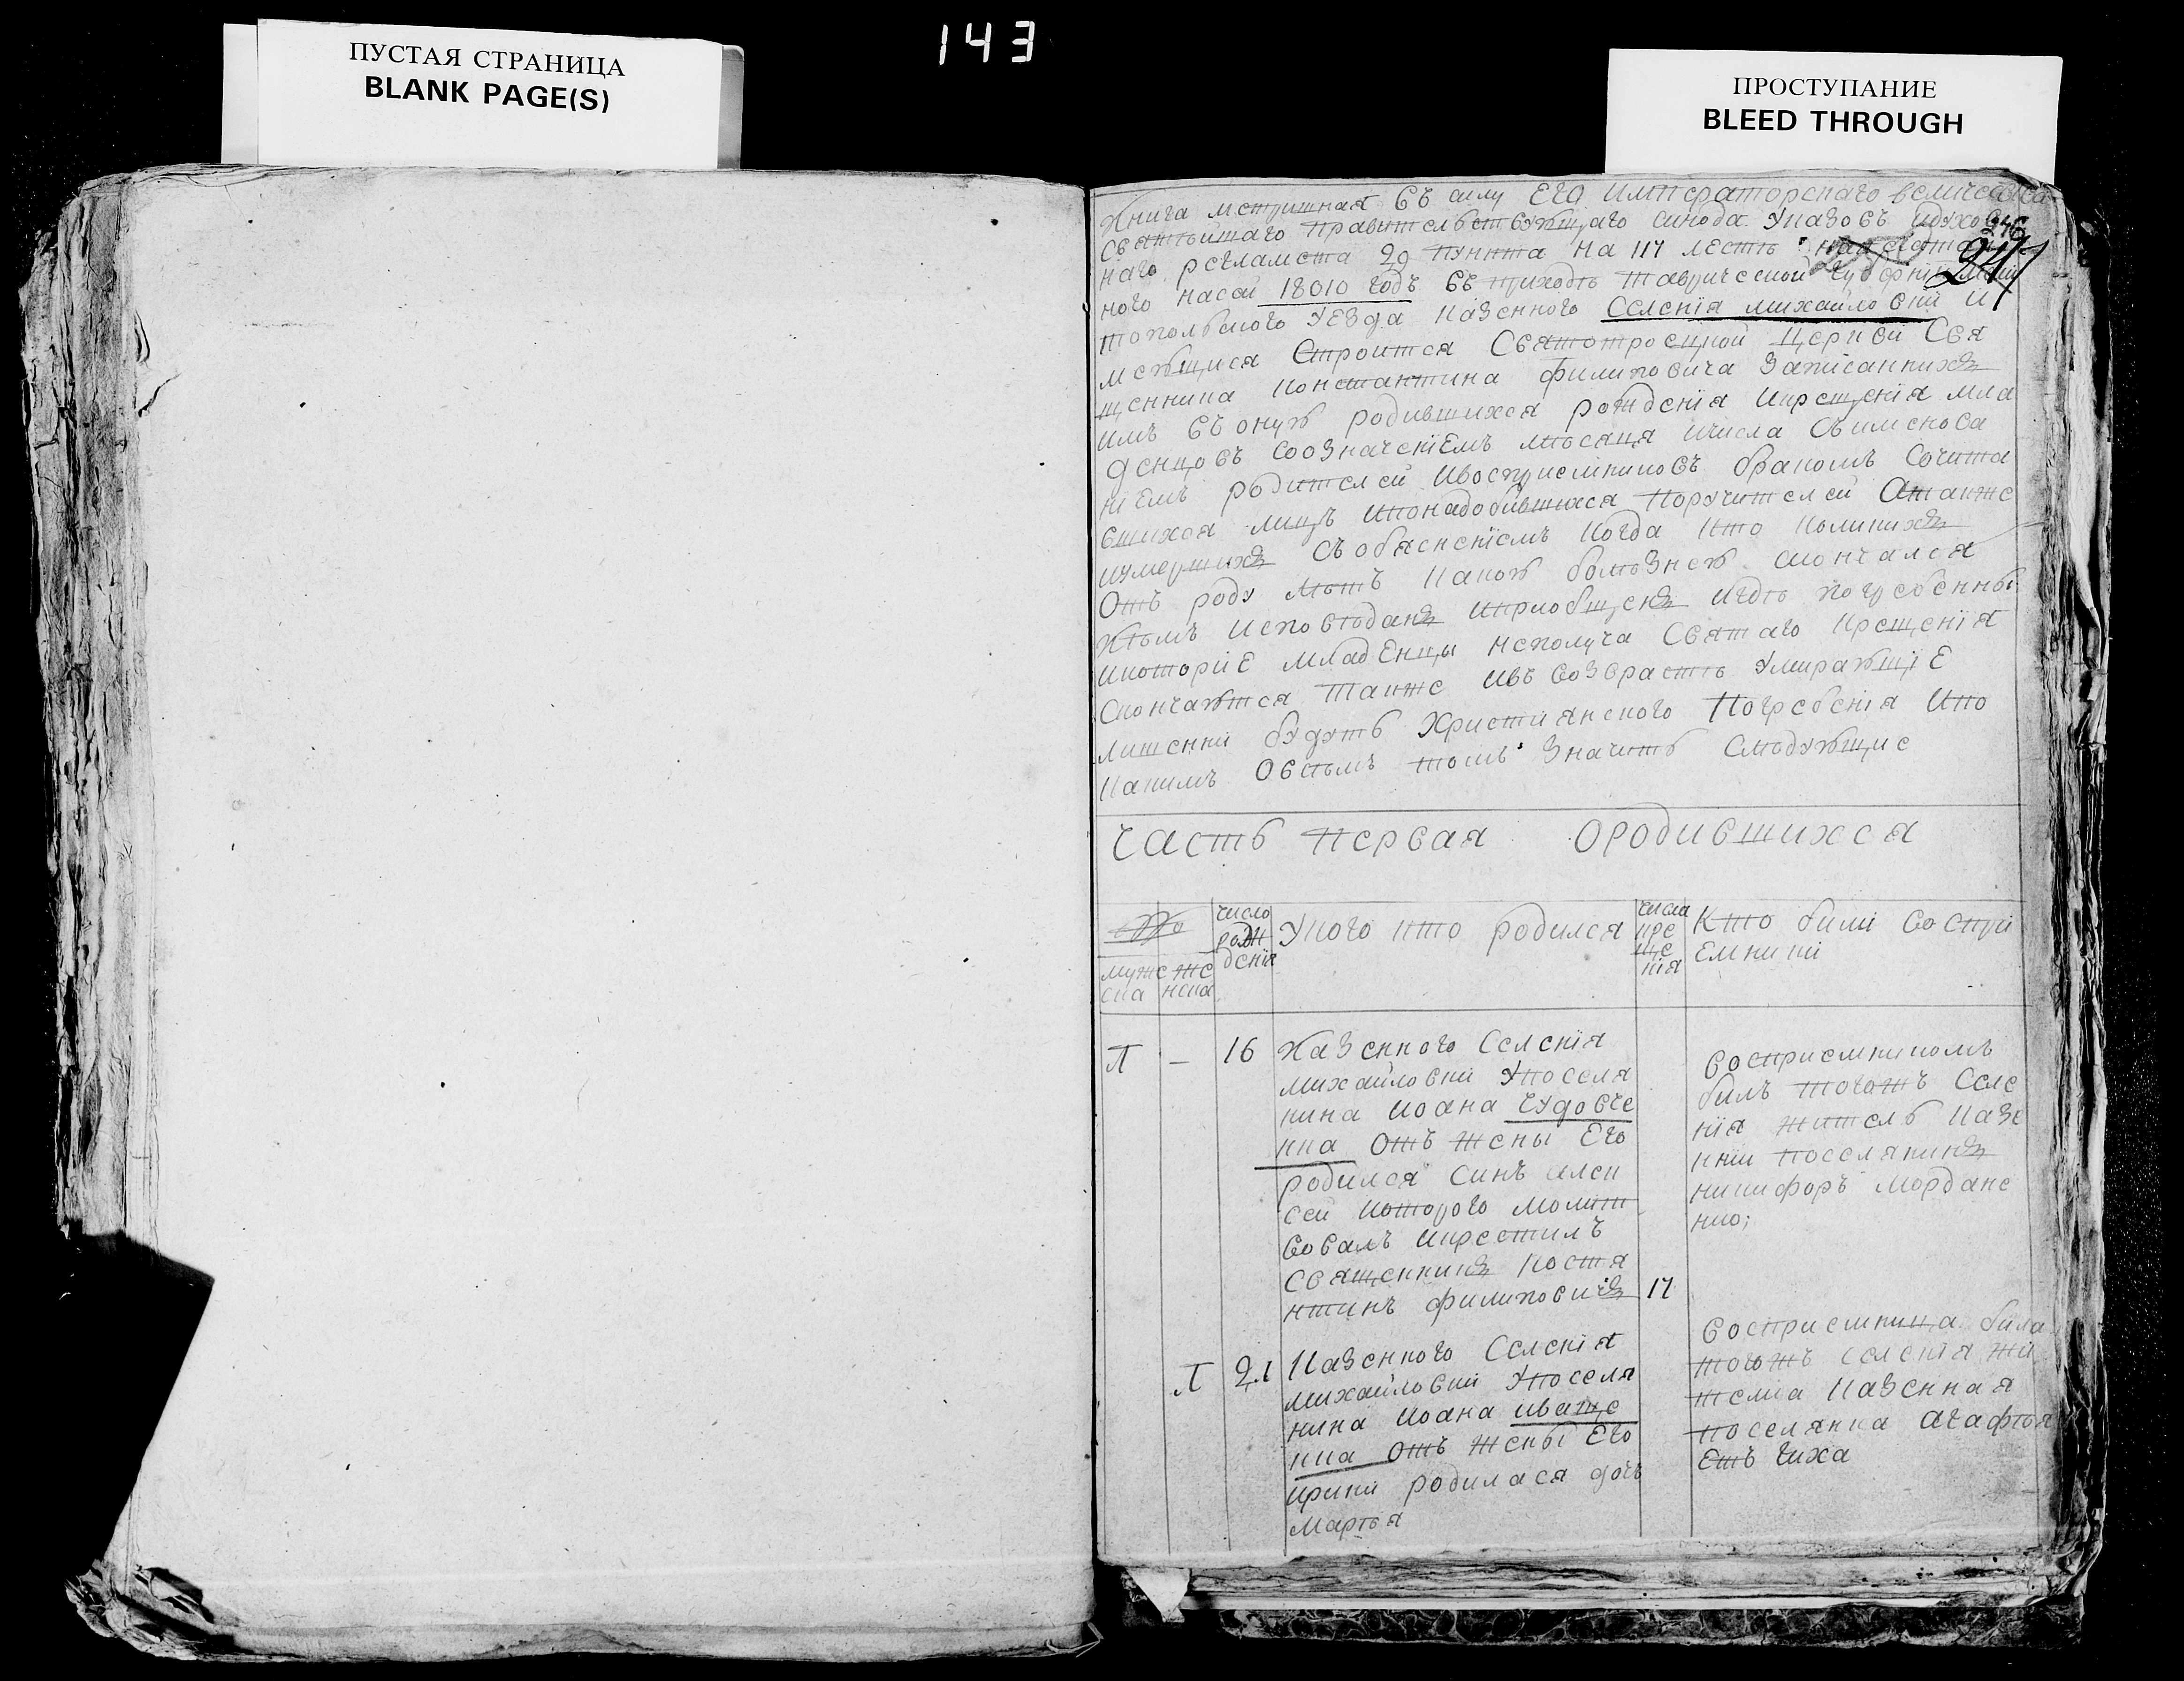 ПУСТАЯ СТРАНИЦА
BLANK PAGE(S)
143
ПРОСТУПАНИЕ
BLEED THROUGH
Книга метришная въ силу Его императорскаго величества
Святѣишаго правителствующаго синода указовъ идухов
246
наго регламента 29 пункта на 117 лестѣ
247
ного насей 18010 годъ въ приходѣ таврической губернии мели
топольского уезда казенного Селенія михайловки и
меющися Строится Святотроецкой церкви Свя
щенника константина филиповича Записанних
имъ въ оную родившихся рождения икрещенія мла
денцовъ Соозначеніемъ мѣсяца ичисла Съименова
ніемъ родителей ивосприемниковъ браком Сочита
вшихся лицъ ипонадобившихся поручителей Атакже
иумерших Съобясненіемъ когда кто коликих
Отъ роду лѣтъ какою болѣзнею скончался
кѣмъ исповѣдан иприобщен игдѣ погребенны
икоторіе младенцы неполуча Святаго крещенія
Скончаются также ивъ возврастѣ умирающіе
лишенни будутъ Християнского Погребенія ипо
какимъ Овсѣмъ томъ значитъ Слѣдующие
часть первая ородившихся
мужеска
женска
число рождения
Укого кто родился
числа крещения
Кто били воспри
емники
П
-
16
Казенного Селенія
михайловки упоселя
нина иоана чудовче
нка отъ жены Его
родился Синъ алек
сей которого молит
вовалъ икрестилъ
Священник конста
нтинъ филипович
17
восприемникомъ
билъ тогожъ Селе
нія житель казе
нній поселянин
никифоръ Мордане
нко;
П
21
Казенного Селенія
михайловки упоселя
нина иоана иваще
нка отъ жены Его
ирини родилася дочь
марѳя
восприемница била
тогожъ селенія жи
телка казенная
поселянка агафѣя